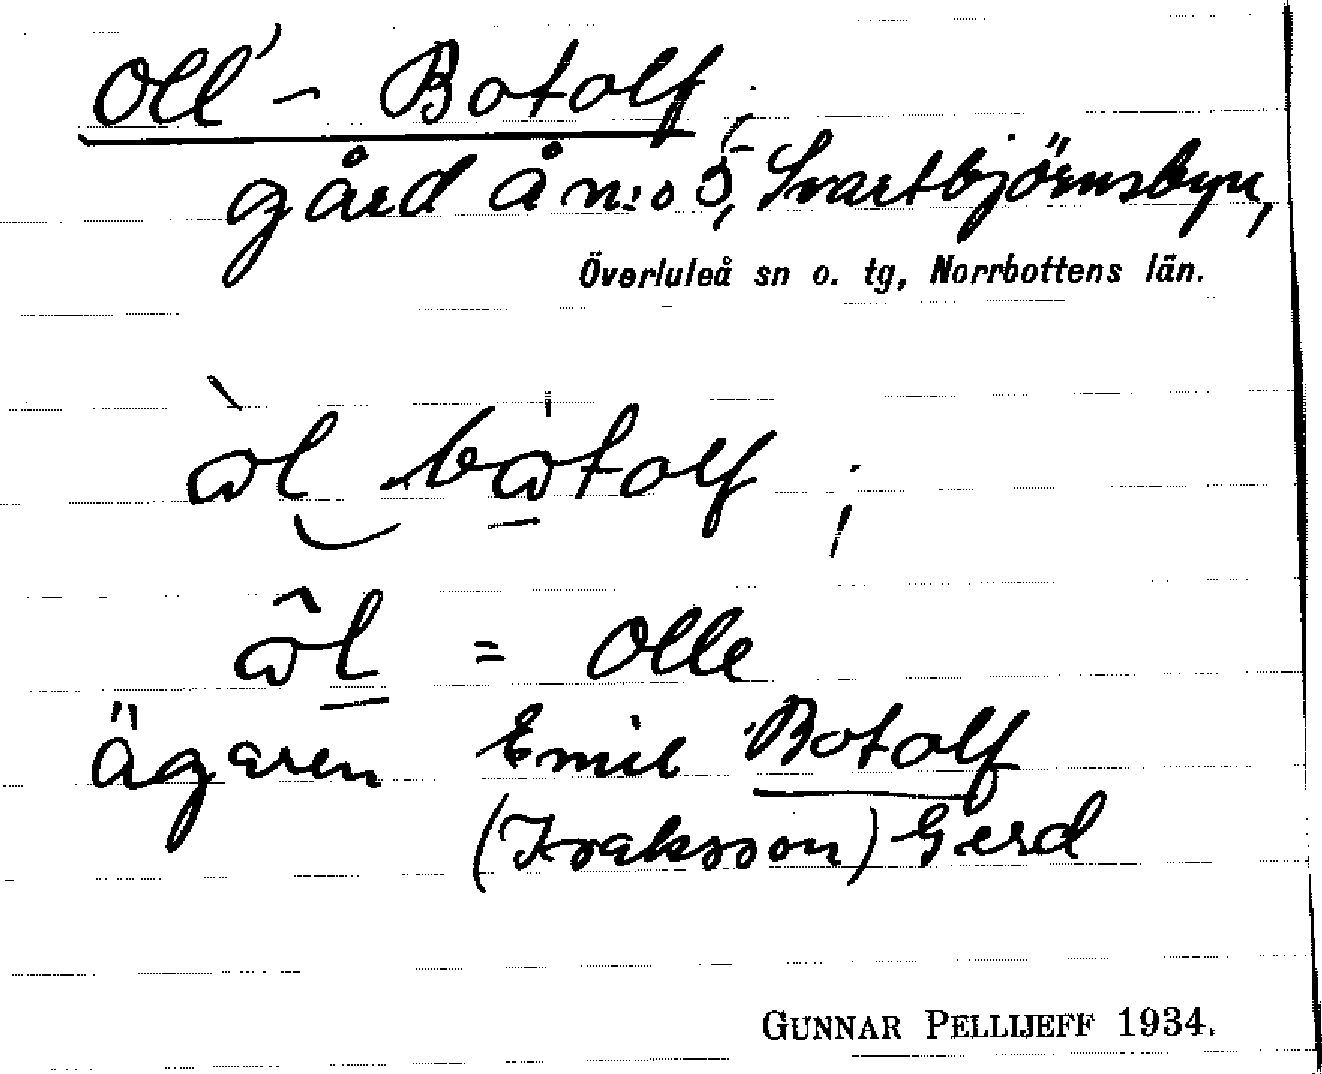 Oll' - Botolf
gård å n:o 5, Svartbjörnsbyn,
Överluleå sn o. tg, Norrbottens län.
ὼl ‿ bω̲tolf ;
ω̂l̲ = Olle
ägaren Emil Botolf
(Isaksson) Gerd
GUNNAR PELLIJEFF 1934.